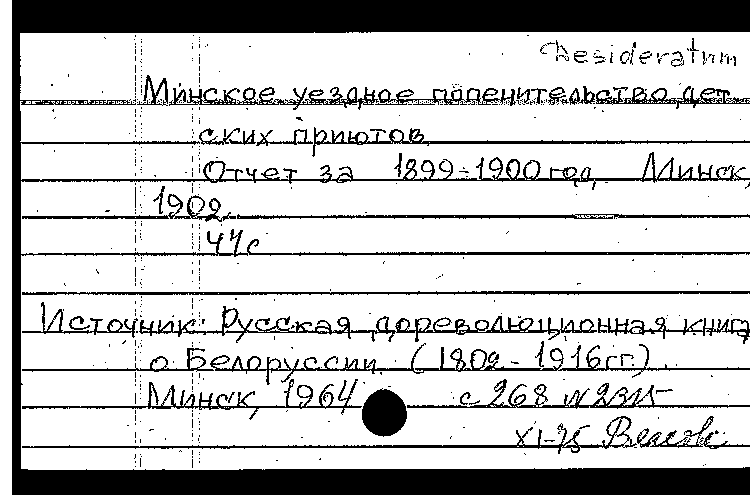 Desideratum
Минское уездное попечительство дет-
ских приютов
Отчет за 1899-1900 год, Минск,
1902.
47 с
Источник: Русская дореволюционная книга
о Белоруссии (1802-1916 гг.).
Минск, 1964 с 268 N 2315
XI-75